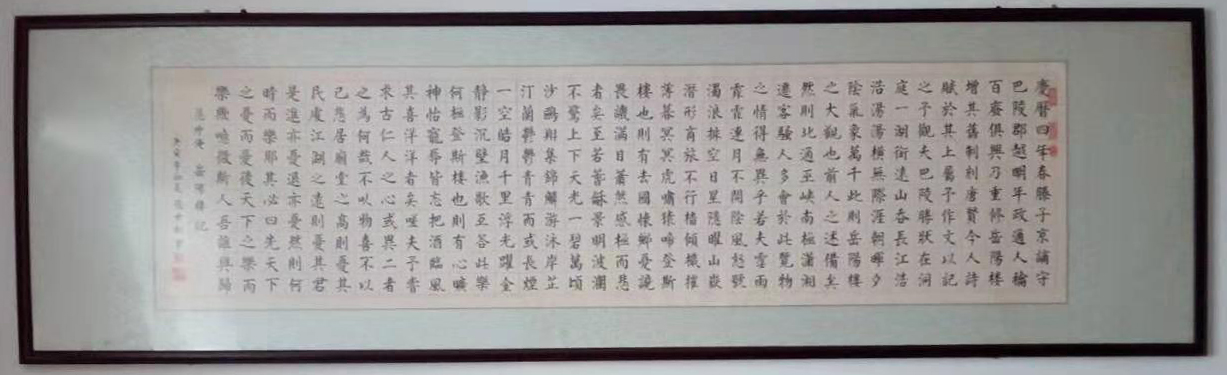 慶曆四年春滕子京謫守
巴陵郡越明年政通人龢
百廢俱興乃重修岳陽樓
增其舊制刻唐賢今人詩
賦於其上屬予作文以記
之予觀夫巴陵勝狀在洞
庭一湖銜遠山吞長江浩
浩湯湯橫無際涯朝暉夕
陰氣象萬千此則岳陽樓
之大觀也前人之述備矣
然則北通巫峽南極瀟湘
遷客騷人多會於此覽物
之情得無異乎若夫霪雨
霏霏連月不開陰風怒號
濁浪排空日星隱曜山嶽
潛形商旅不行檣傾楫摧
薄暮冥冥虎嘯猿啼登斯
樓也則有去國懷鄉憂讒
畏譏滿目蕭然感極而悲
者矣至若春龢景明波瀾
不驚上下天光一碧萬頃
沙鷗翔集錦鱗游泳岸芷
汀蘭鬱鬱青青而或長煙
一空皓月千里浮光躍金
靜影沉璧漁歌互答此樂
何極登斯樓也則有心曠
神怡寵辱皆忘把酒臨風
其喜洋洋者矣嗟夫予嘗
求古仁人之心或異二者
之為何哉不以物喜不以
己悲居廟堂之高則憂其
民處江湖之遠則憂其君
是進亦憂退亦憂然則何
時而樂耶其必曰先天下
之憂而憂後天下之樂而
樂歟噫微斯人吾誰與歸
范仲淹 岳陽樓記